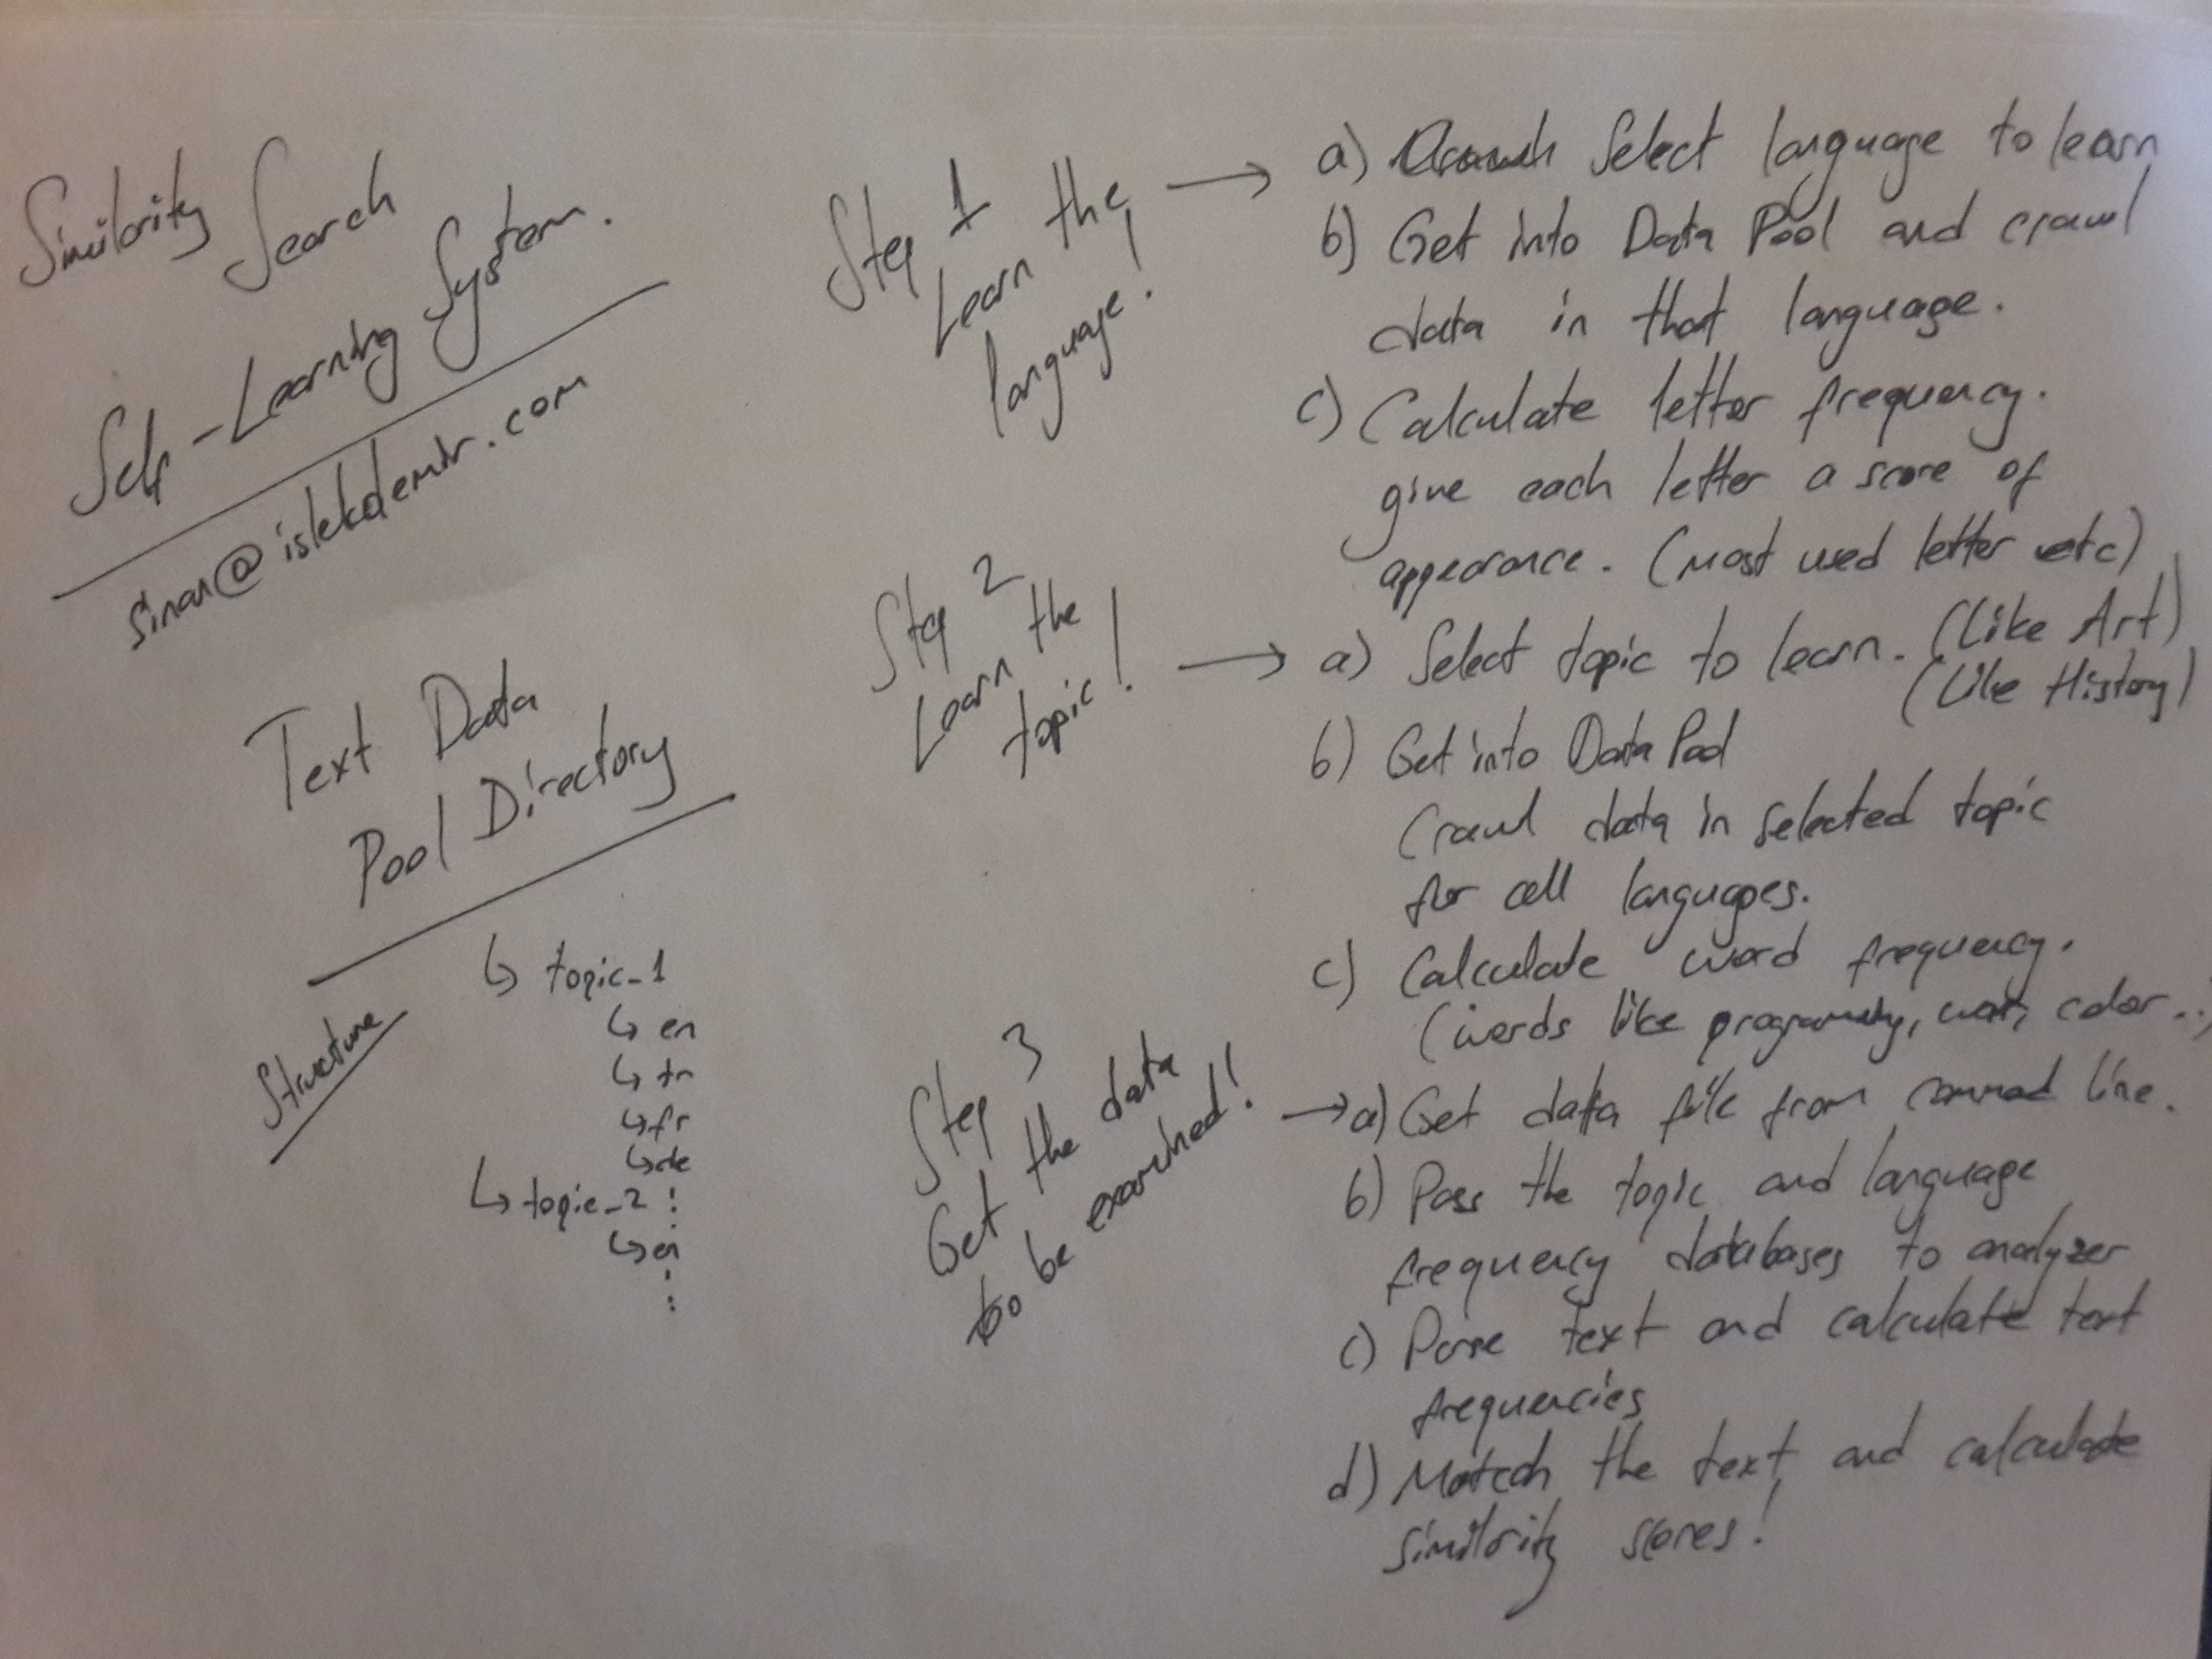 Similarity Search
Self-Learning System.
sinan@islekdemir.com
Text Data
Pool Directory
Structure
↳ topic_1
↳ en
↳ tr
↳ fr
↳ de
↳ topic_2 :
↳ en
:
Step 1
Learn the
language!
→ a) Select language to learn
b) Get into Data Pool and crawl
data in that language.
c) Calculate letter frequency.
give each letter a score of
appearance. (most used letter etc)
Step 2
Learn the
topic!
→ a) Select topic to learn. (Like Art)
(Like History)
b) Get into Data Pool
Crawl data in selected topic
for all languages.
c) Calculate word frequency.
(words like war, color...)
Step 3
Get the data
to be examined!
→ a) Get data file from command line.
b) Pass the topic and language
frequency databases to analyzer
c) Parse text and calculate text
frequencies
d) Match the text and calculate
similarity scores!